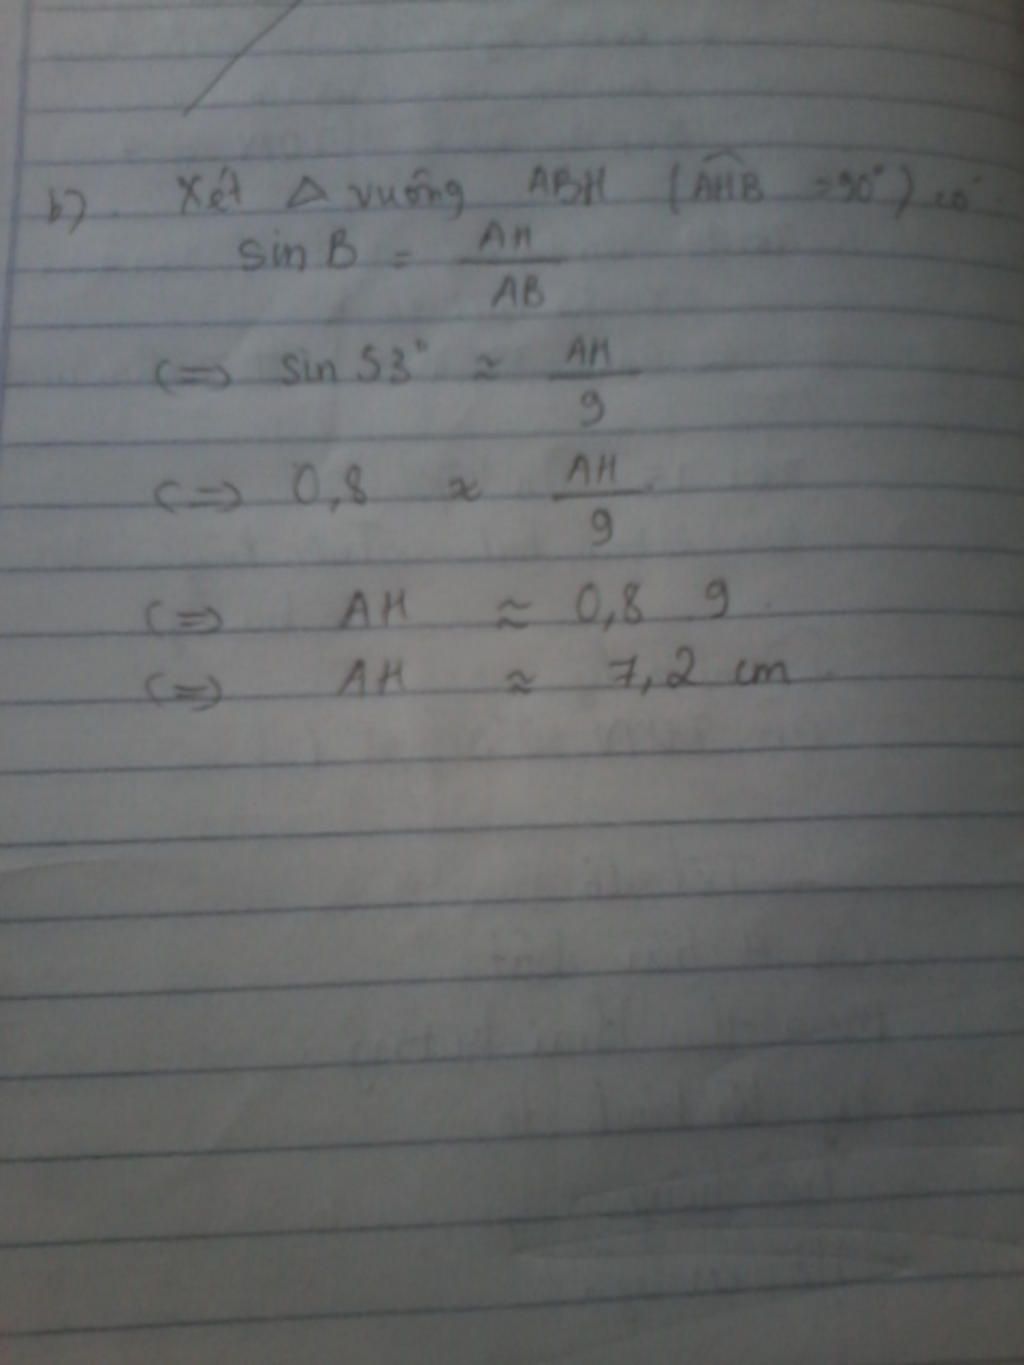 b) Xét Δ vuông ABH (AHB = 90°) có
sin B = AH/AB
<=> sin 53° ≈ AH/9
<=> 0,8 ≈ AH/9
<=> AH ≈ 0,8 9
<=> AH ≈ 7,2 cm